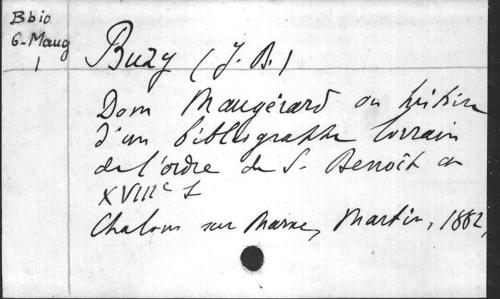 Bbio
6-Maug
1
Buzy (J. B.)
Dom Maugérard ou histoire
d'un bibliographe lorrain
de l'ordre de S. Benoît au
XVIIIe S
Chalons sur Marne, Martin, 1882,